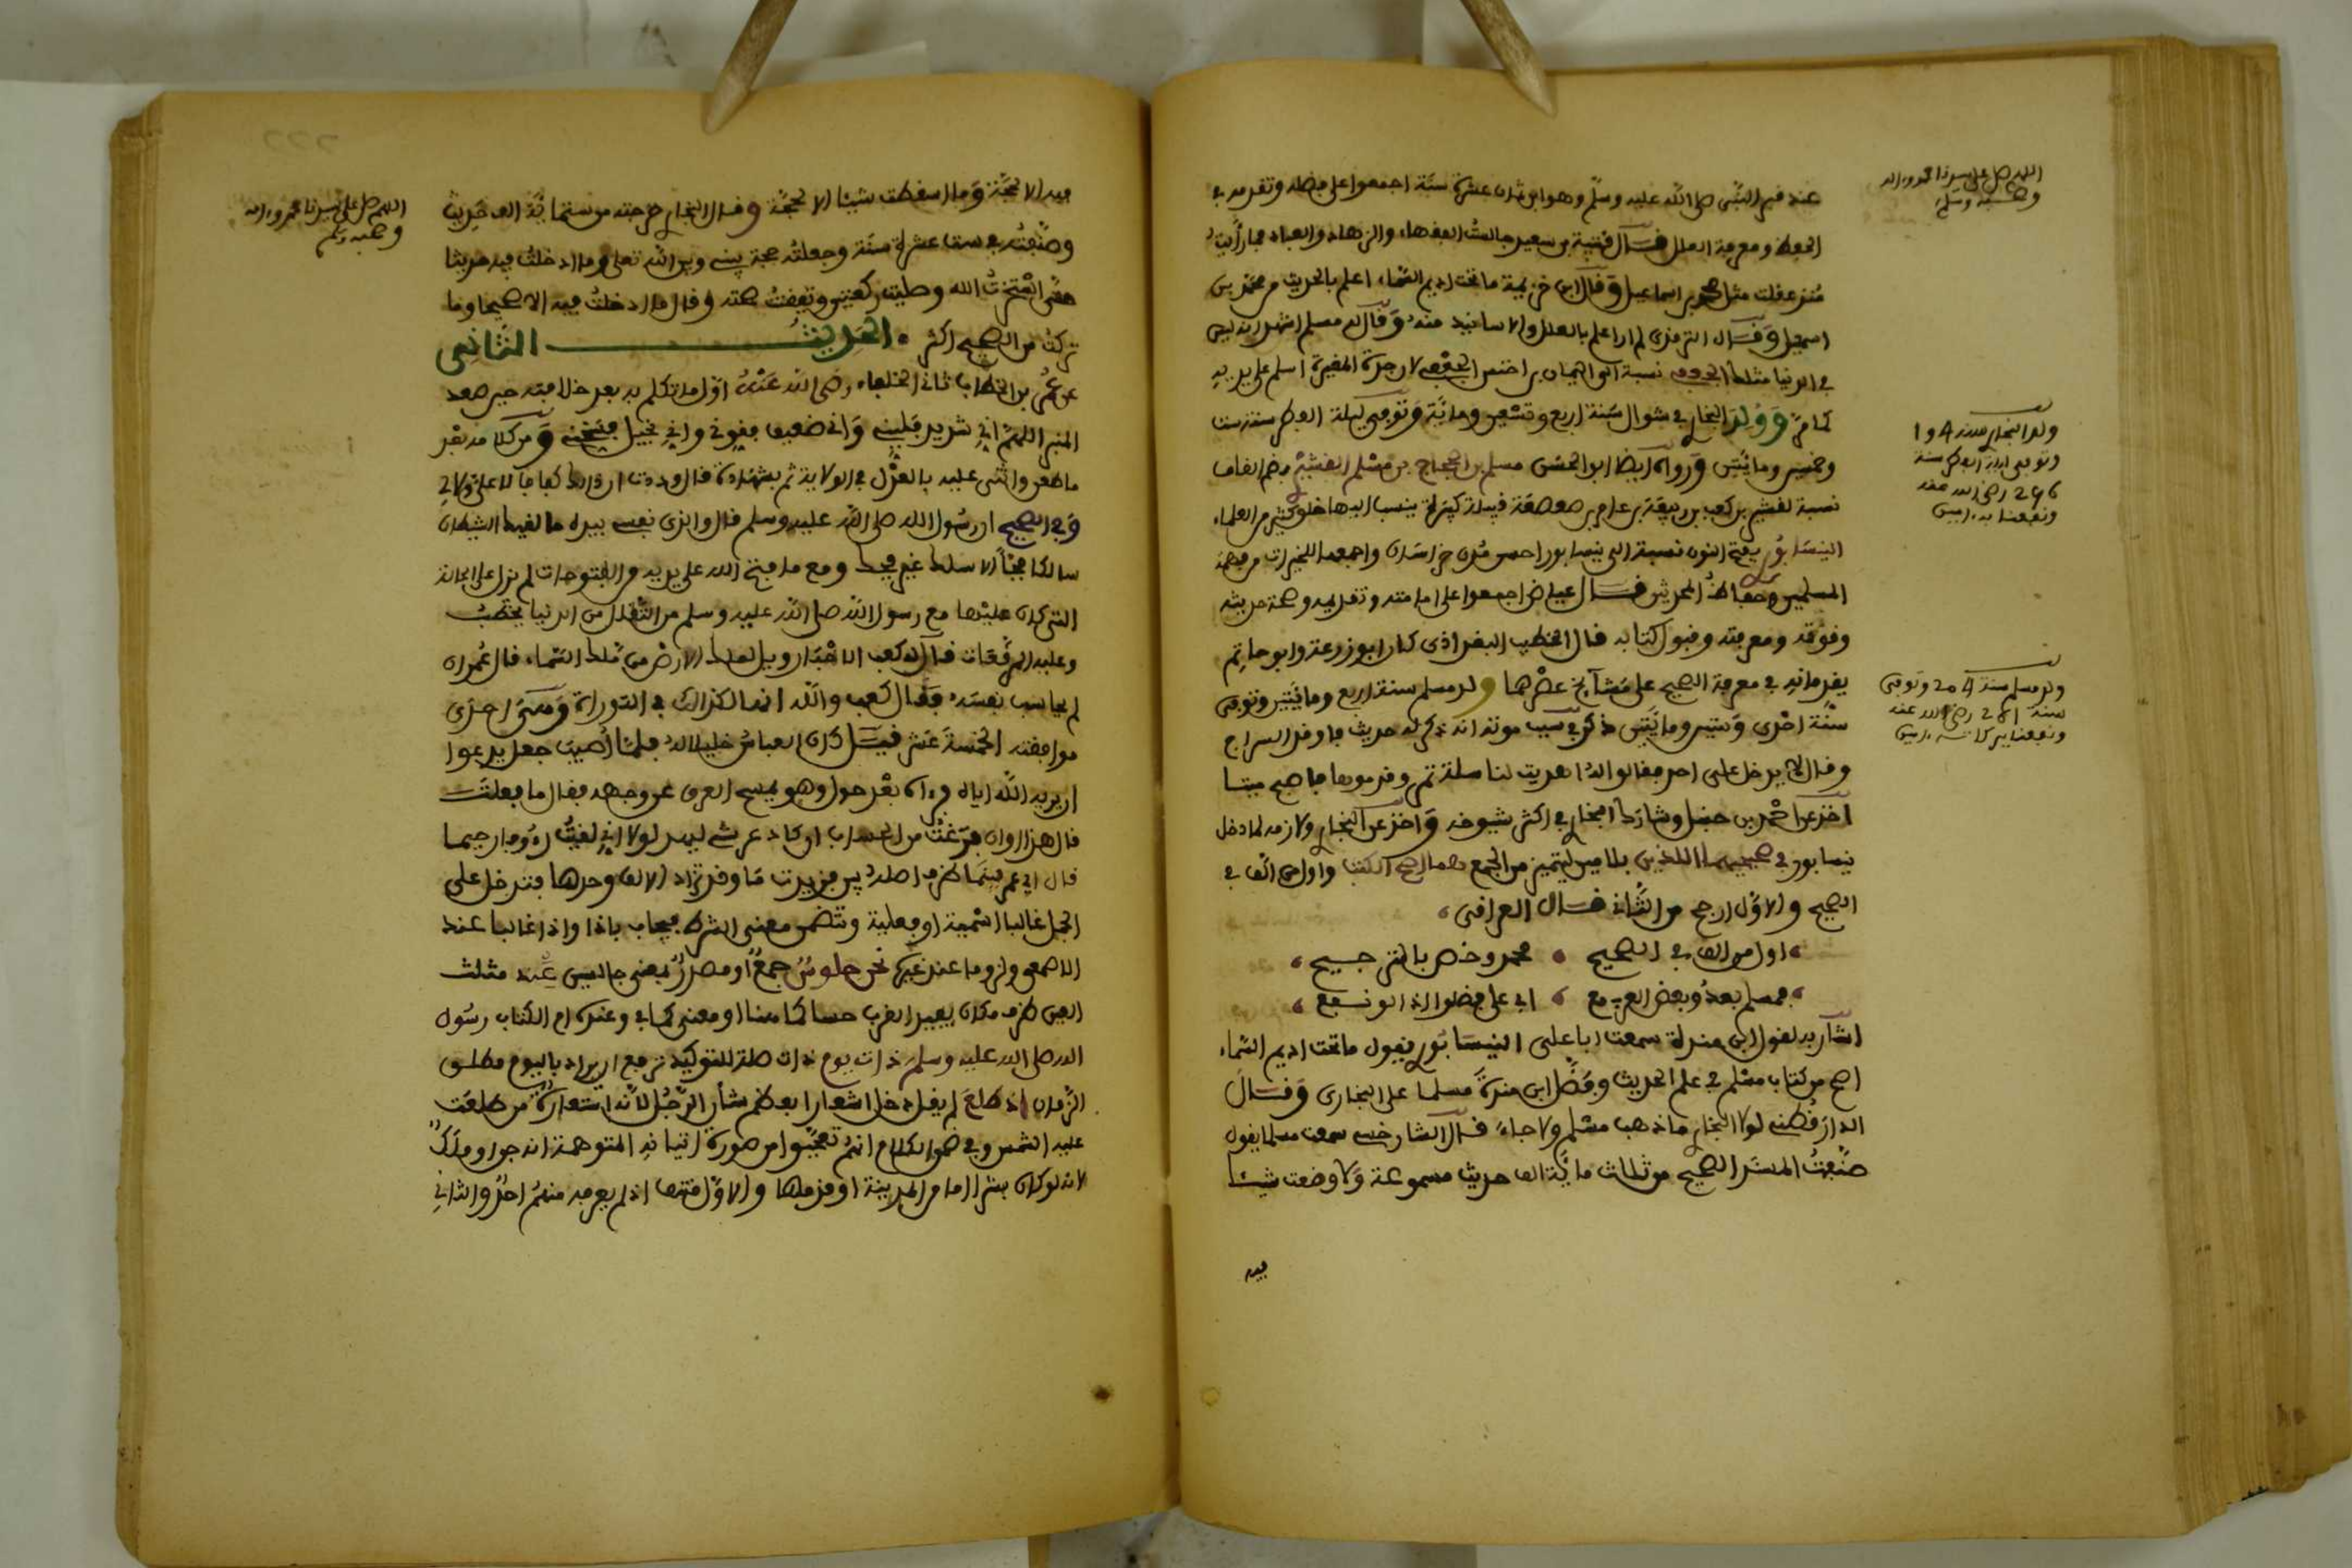 عند قبر النبي صلى الله عليه وسلم وهو ابن ثمان عشرة سنة اجمعوا على حفظه وتقدمه في
الحفظ ومعرفة العلل قال قتيبة بن سعيد جالست الفقهاء والزهاد والعباد فما رأيت
منذ عقلت مثل محمد بن اسماعيل وقال ابن خزيمة ما تحت اديم السماء اعلم بالحديث من محمد بن
اسمعيل وقال الترمذي لم ار اعلم بالعلل والاسانيد منه وقال له مسلم اشهد انه ليس
في الدنيا مثلك الجعفي نسبة الى اليمان بن اخنس الجعفي لان جده المغيرة اسلم على يديه
كما مر وولد البخاري في شوال سنة اربع وتسعين ومائة وتوفي ليلة الفطر سنة ست
وخمسين ومائتين ورواه ايضا ابو الحسين مسلم بن الحجاج بن مسلم القشيري بضم القاف
نسبة لقشير بن كعب بن ربيعة بن عامر بن صعصعة قبيلة كبيرة ينسب اليها خلق كثير من العلماء
النيسابوري بفتح النون نسبة الى نيسابور احسن مدن خراسان واجمعها للخيرات من
المسلمين وحفاظ المحدثين قال عياض اجمعوا على امامته وتقديمه وصحة حديثه
وفوقه ومعرفته وقبول كتابه قال الخطيب البغداذي كان ابو زرعة وابو حاتم
يقدمانه في معرفة الصحيح على مشايخ عصرهما ولد مسلم سنة اربع ومائتين وتوفي
سنة احدى وستين ومائتين ذكر في سبب موته انه ذكر له حديث فاوقد السراج
وقال لا يدخل علي احد فقالوا له اهديت لنا سلة تمر وقدموها فاصبح ميتا
اخذ عن احمد بن حنبل وشارك البخاري في اكثر شيوخه واخذ عن البخاري ولازمه لما دخل
نيسابور في صحيحيهما اللذين بلامين ليتميز من الجمع هما اصح الكتب واول من الف في
الصحيح والاول ارجح من الثاني قال العراقي
اول من الف في الصحيح محمد وخص بالترجيح
فمسلم بعد وبعض الغرب مع ابي علي فضلوا ذا لو نفع
اشار به لقول ابن مندة سمعت ابا علي النيسابوري يقول ما تحت اديم السماء
اصح من كتاب مسلم في علم الحديث وفضل ابن مندة مسلما على البخاري وقال
الدارقطني لولا البخاري ما ذهب مسلم ولا جاء قال السارخسي سمعت مسلما يقول
صنفت المسند الصحيح من ثلاث مائة الف حديث مسموعة ولا وضعت شيئا
فيه
اللهم صل على سيدنا محمد وءاله
وصحبه وسلم
ولد البخاري سنة 194
وتوفي ليلة الفطر سنة
256 رضي الله عنه
ونفعنا به ءامين
ولد مسلم سنة 204 وتوفي
سنة 261 رضي الله عنه
ونفعنا ببركاته ءامين
فيه الا بحجة وما اسقطت شيئا الا بحجة وقال البخاري خرجته من ستمائة الف حديث
وصنفته في ست عشرة سنة وجعلته حجة بيني وبين الله تعلى وما ادخلت فيه حديثا
حتى استخرت الله وصليت ركعتين وتيقنت صحته وقال ما ادخلت فيه الا صحيحا وما
تركت من الصحيح اكثر الحديث الثاني
عن عمر بن الخطاب ثاني الخلفاء رضي الله عنه اول ما تكلم به بعد خلافته حين صعد
المنبر اللهم اني شديد فليني واني ضعيف فقوني واني بخيل فسخني ومن كلامه بعد
ما طعن واثنى عليه بالعدل في الولاية ثم بشهادة قال وددت ان ذلك كفافا لا علي ولا لي
وفي الصحيح ان رسول الله صلى الله عليه وسلم قال والذي نفسي بيده ما لقيك الشيطان
سالكا فجا الا سلك غير فجك ومع ما فتح الله على يديه من الفتوحات لم يزل على الحالة
التي كان عليها مع رسول الله صلى الله عليه وسلم من التقلل من الدنيا يخطب
وعليه المرقعات قال له كعب الاحبار ويل لملك الارض من ملك السماء قال عمر ان
لم يحاسب نفسه فقال كعب والله انها لكذالك في التوراة احدى
موافقته الخمسة عشر قيل كان العباس خليلا له فلما اصيب جعل يدعوا
ان يريه الله اياه فرءاه بعد حول وهو يمسح العرق عن وجهه فقال ما فعلت
قال هذا اوان فرغت من الحساب ان كاد عرشي ليهد لولا اني لقيت رءوفا رحيما
قال اي عمر بينما ظرف اصله بين فزيدت ما وقد تزاد الالف وحدها فتدخل على
الجمل غالبا اسمية او فعلية وتتضمن معنى الشرط فيجاب باذا واذ غالبا عند
الاصمعي ولزوما عند غيره نحن جلوس جمع او مصدر بمعنى جالسين عند مثلث
العين ظرف مكان يفيد القرب حسا كما هنا او معنى كما في وعنده ام الكتاب رسول
الله صلى الله عليه وسلم ذات يوم ذات صلة للتوكيد ترفع ان يراد باليوم مطلق
الزمان اذ طلع لم يقل دخل اشعارا بعظم شأن الرجل لانه استعارة من طلعت
عليه الشمس وفي ضمن الكلام انهم تعجبوا من صورة اتيانه المتوهمة انه جن او ملك
لانه لو كان بشرا اما من المدينة او قربها والاول منتف اذ لم يعرفه منهم احد والثاني
اللهم صل على سيدنا محمد وءاله
وصحبه وسلم